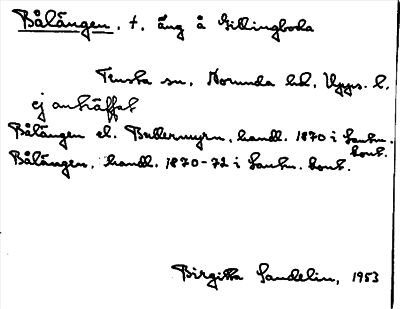 Bålängen, †, äng å Gillingboda
Tensta sn, Norunda hd, Upps. l.
ej anträffat
Bålängen el. Buttermyrn, handl. 1870 i Lantm. kont.
Bålängen, handl. 1870-72 i Lantm. kont.
Birgitta Sandelin, 1953